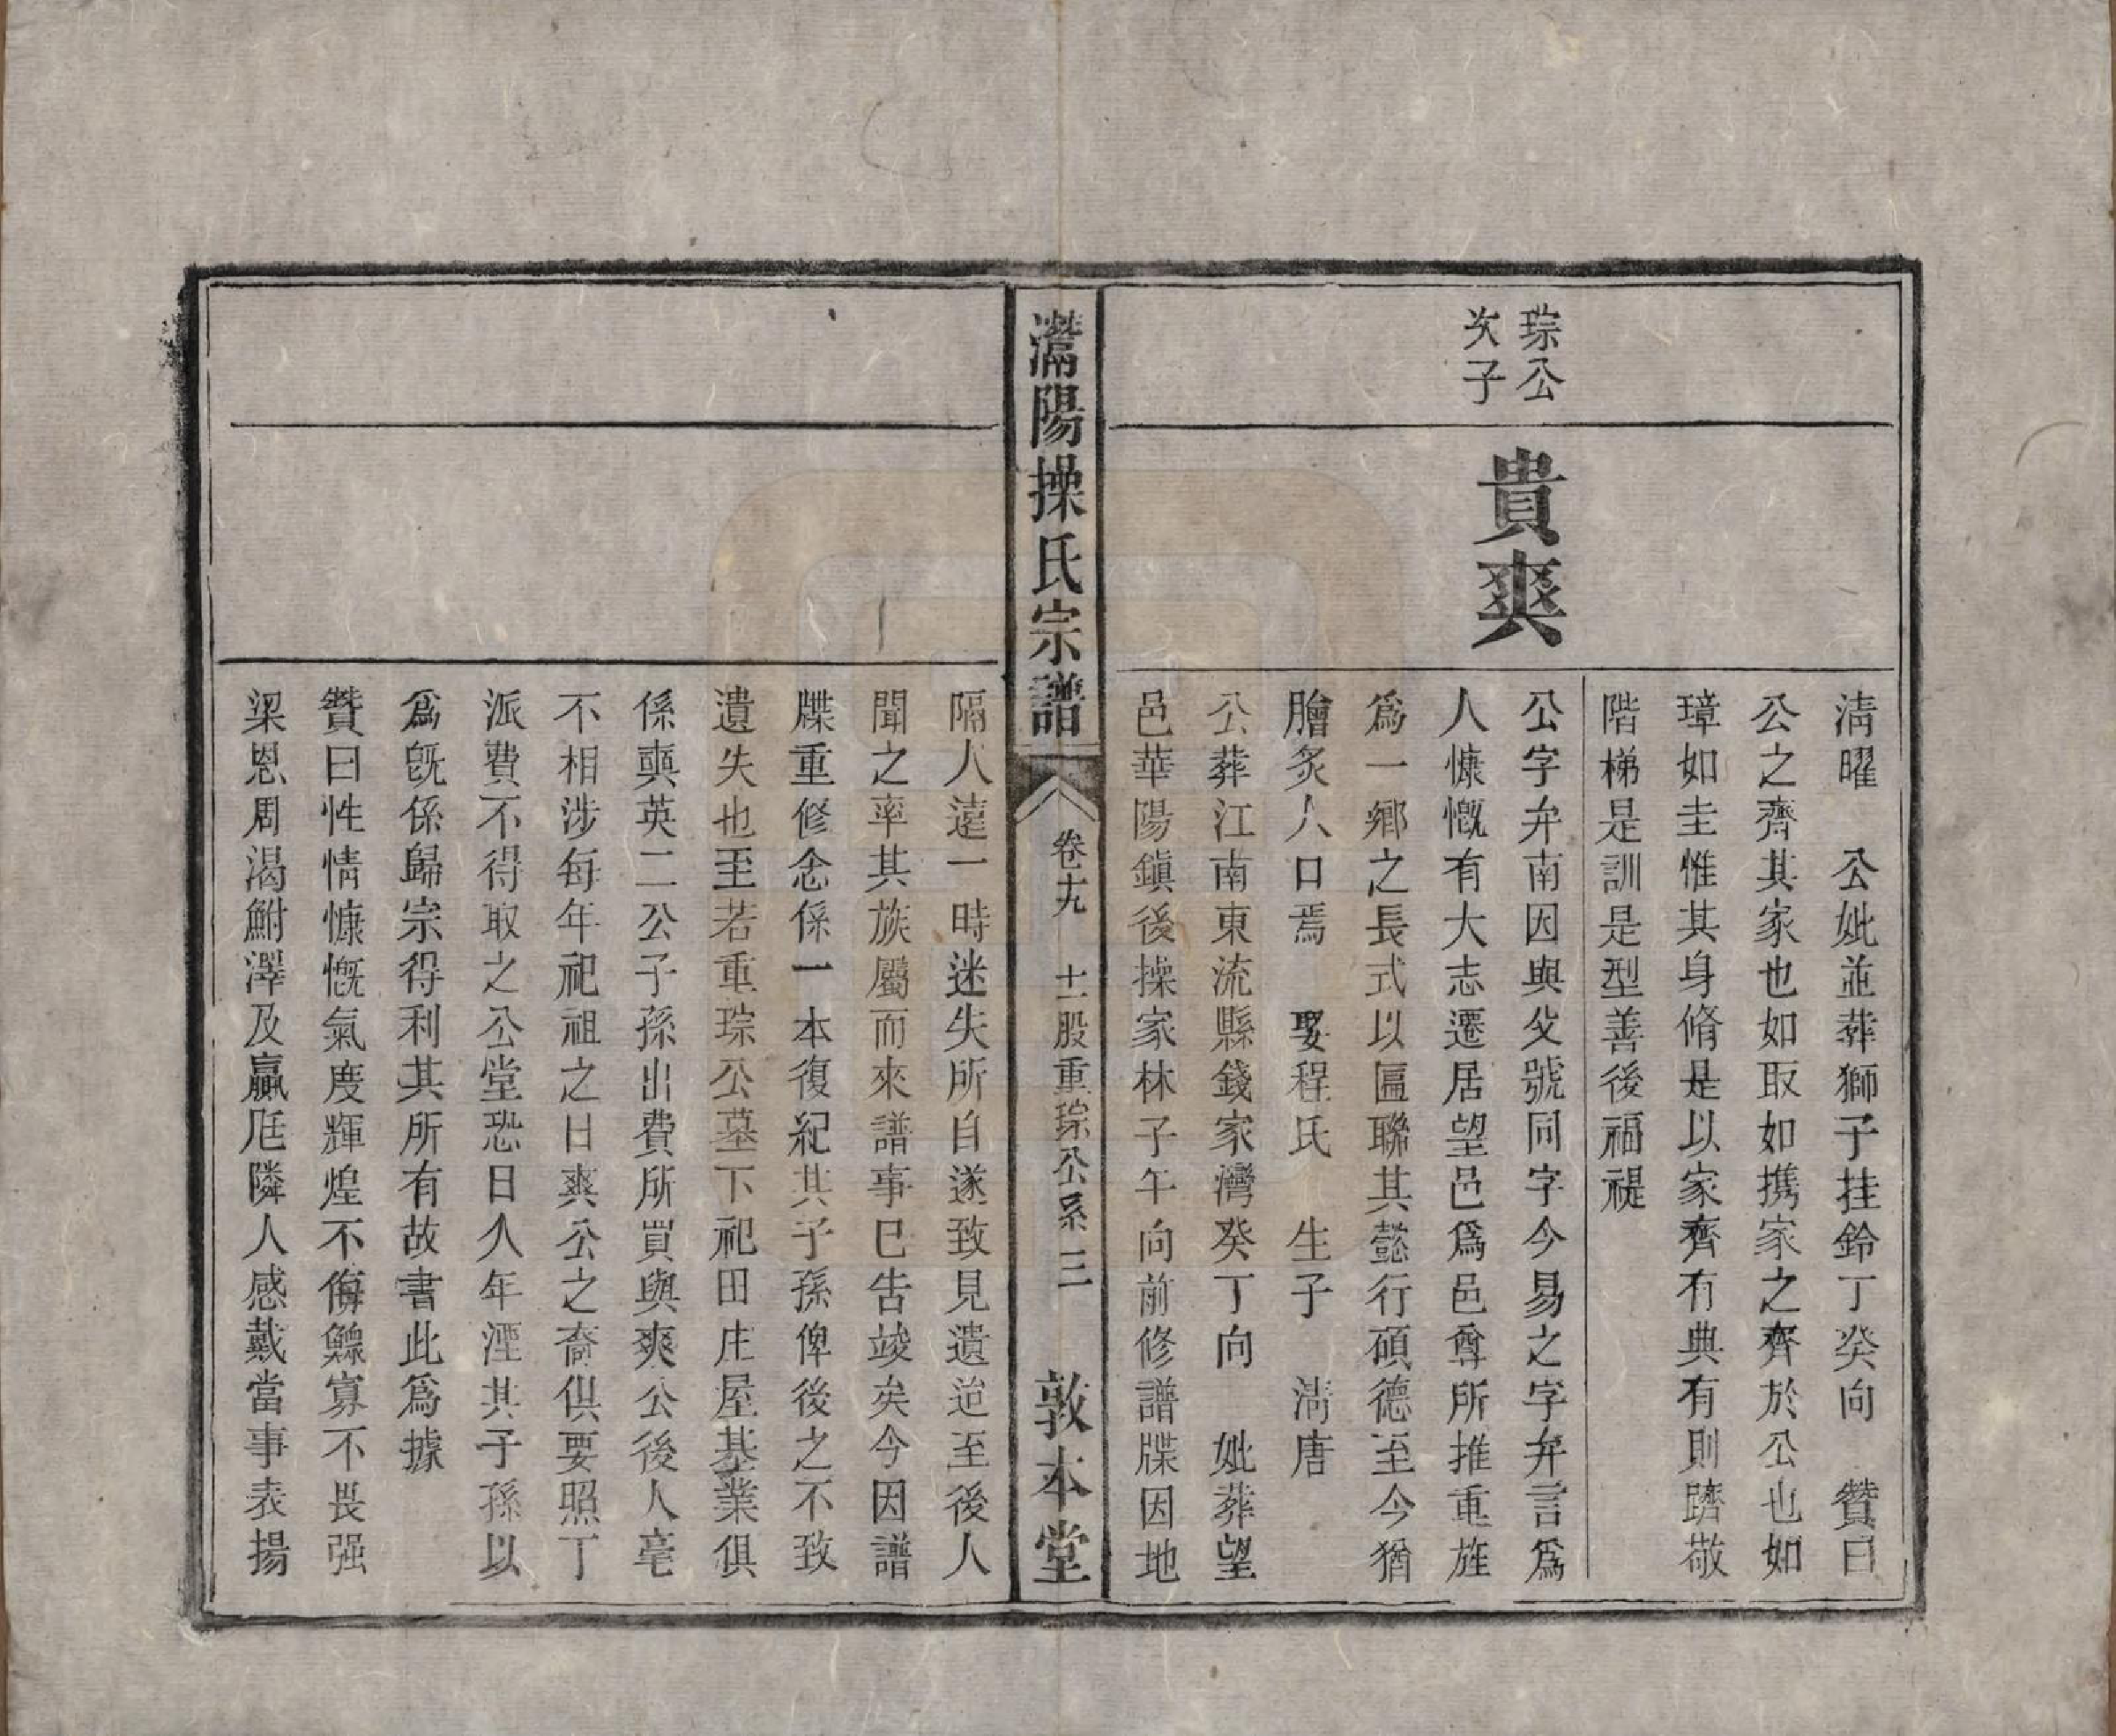 琮公
次子
貴爽
清曜　公妣並葬獅子挂鈴丁癸向　贊曰
公之齊其家也如取如携家之齊於公也如
璋如圭惟其身脩是以家齊有典有則躋敬
階梯是訓是型善後福禔
公字弁南因與父號同字今易之字弁言爲
人慷慨有大志遷居望邑爲邑尊所推重旌
爲一鄉之長式以匾聯其懿行碩德至今猶
膾炙人口焉　娶程氏　生子　淸唐
公葬江南東流縣錢家灣癸丁向　妣葬望
邑華陽鎭後操家林子午向前修譜牒因地
灊陽操氏宗譜
卷十九　十一股重琮公系　三
敦本堂
隔人遠一時迷失所自遂致見遺迨至後人
聞之率其族屬而來譜事已告竣矣今因譜
牒重修念係一本復紀其子孫俾後之不致
遺失也至若重琮公墓下祀田庄屋基業俱
係奭英二公子孫出費所買與爽公後人毫
不相涉每年祀祖之日爽公之裔俱要照丁
派費不得取之公堂恐日久年湮其子孫以
爲旣係歸宗得利其所有故書此爲據
贊曰性情慷慨氣度輝煌不侮鰥寡不畏强
梁恩周涸鮒澤及羸尫隣人感戴當事表揚